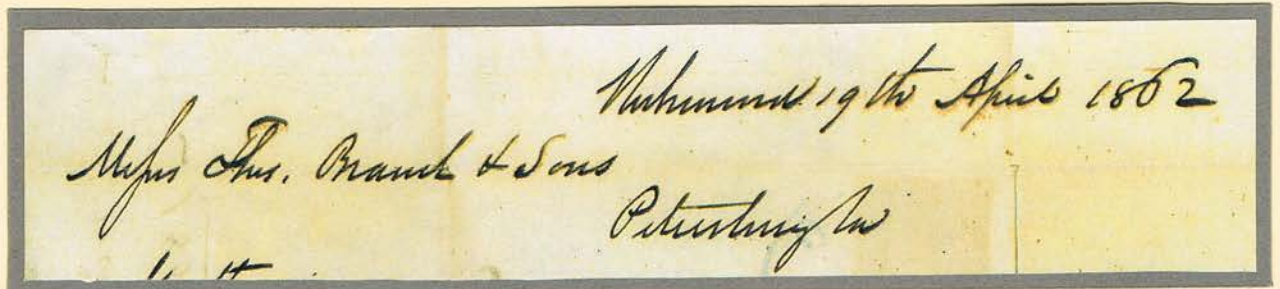 Richmond 19th April 1862
Messrs Thos. Branch & Sons
Petersburg Va